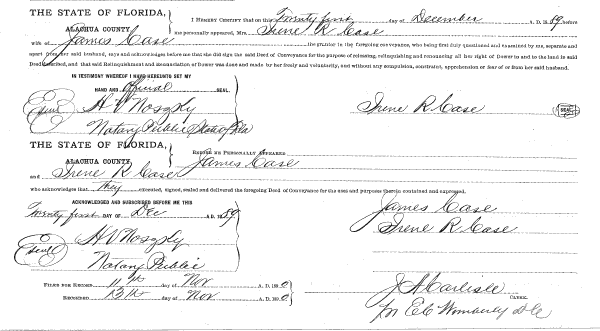 THE STATE OF FLORIDA,
ALACHUA COUNTY.
I HEREBY CERTIFY that on this Twenty first day of December A. D. 1889, before
me personally appeared, Mrs. Irene R Case
wife of James Case the grantor in the foregoing conveyance, who being first duly questioned and examined by me, separate and
apart from her said husband, says and acknowledges before me that she did sign the said Deed of Conveyance for the purpose of releasing, relinquishing and renouncing all her right of Dower in and to the land in said
Deed described, and that said Relinquishment and Renunciation of Dower was done and made by her freely and voluntarily, and without any compulsion, constraint, apprehension or fear of or from her said husband.
IN TESTIMONY WHEREOF I HAVE HEREUNTO SET MY
HAND AND Official SEAL.
H V Nosgply
Notary Public State of Fla
Irene R Case
SEAL
THE STATE OF FLORIDA,
ALACHUA COUNTY.
BEFORE ME PERSONALLY APPEARED
James Case
and Irene R Case
who acknowledges that they executed, signed, sealed and delivered the foregoing Deed of Conveyance for the uses and purposes therein contained and expressed.
ACKNOWLEDGED AND SUBSCRIBED BEFORE ME THIS
Twenty first DAY OF Dec A. D. 1889
James Case
Irene R Case
Seal
H V Nosgply
Notary Public
FILED FOR RECORD 11th day of Nov A. D. 1890
RECORDED 13th day of Nov A. D. 1890
J A Carlisle
CLERK.
Per E C Womberly D C